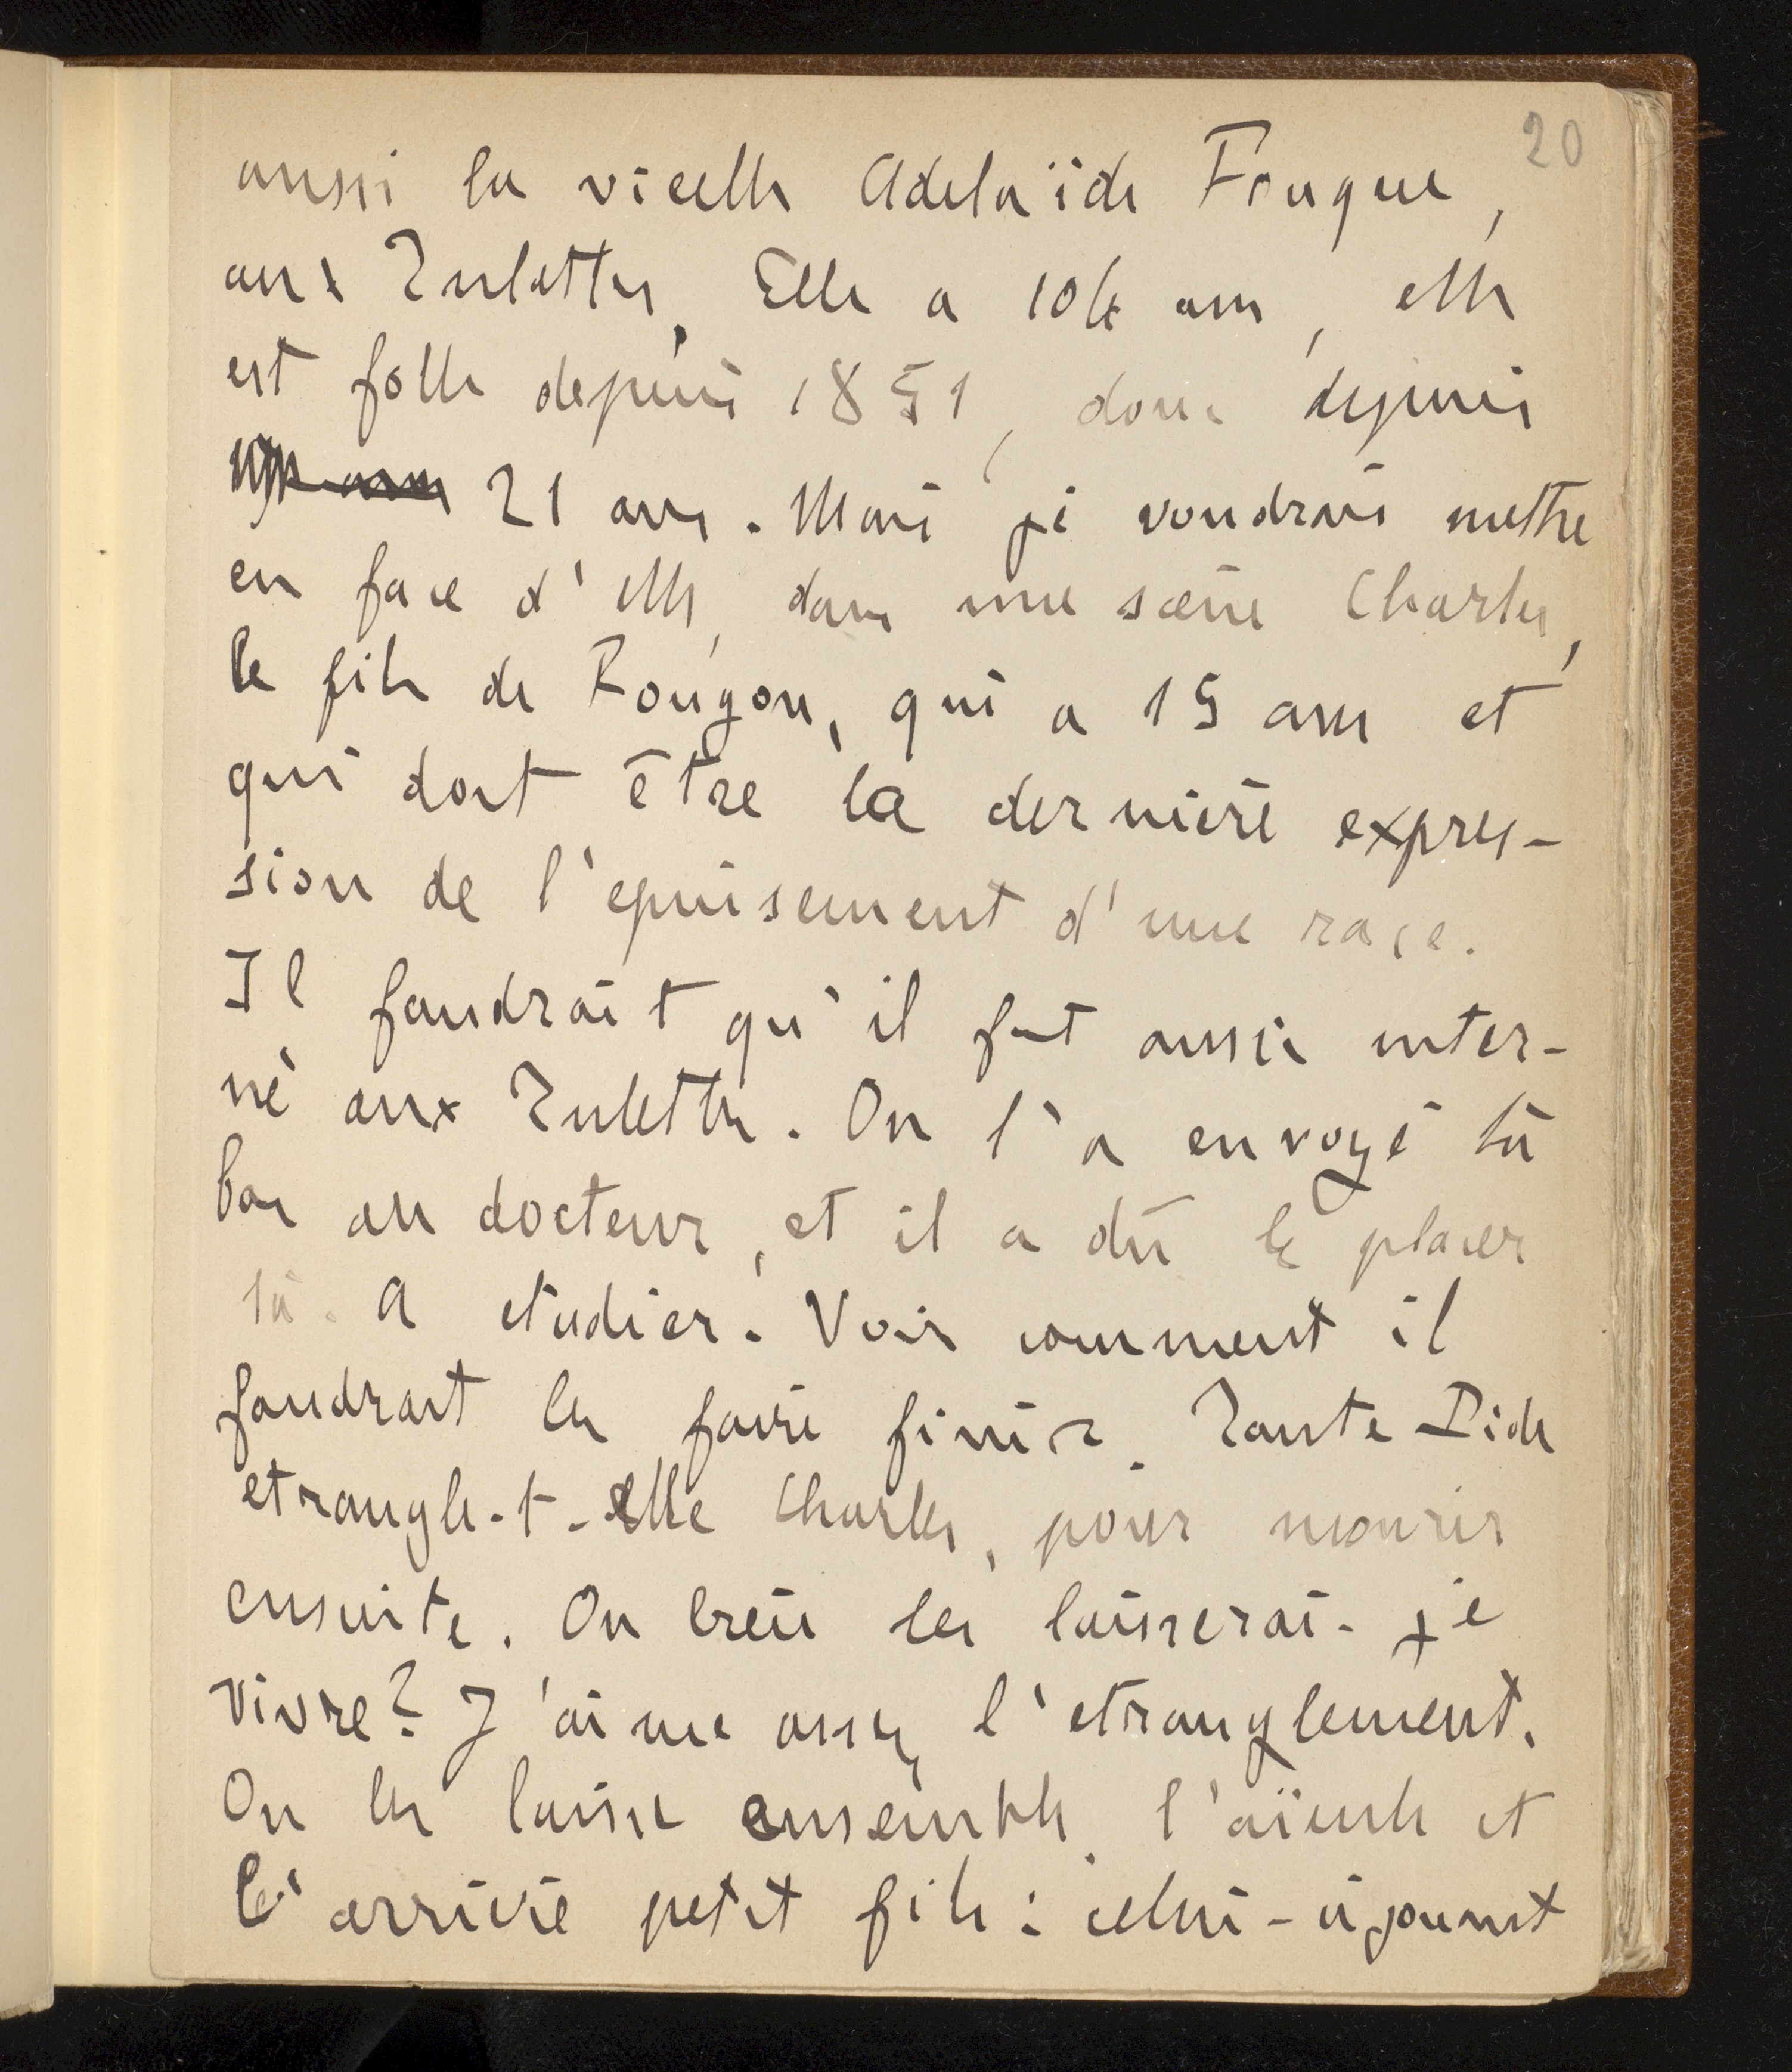 20
aussi la vieille Adelaïde Fouque,
aux Tulettes. Elle a 104 ans, elle
est folle depuis 1851, donc depuis
21 ans. Mais je voudrais mettre
en face d'elle, dans une scène Charles,
le fils de Rougon, qui a 15 ans et
qui doit être la dernière expres-
sion de l'epuisement d'une race.
Il faudrait qu'il fut aussi inter-
né aux Tulettes. On l'a envoyé là
bas au docteur, et il a dû le placer
là. A etudier. Voir comment il
faudrait les faire finir. Tante Dide
etrangle-t-elle Charles, pour mourir
ensuite. Ou bien les laisserai-je
vivre? J'aime assez l'etranglement.
On les laisse ensemble, l'aïeule et
l'arrière petit fils: celui-ci jouant